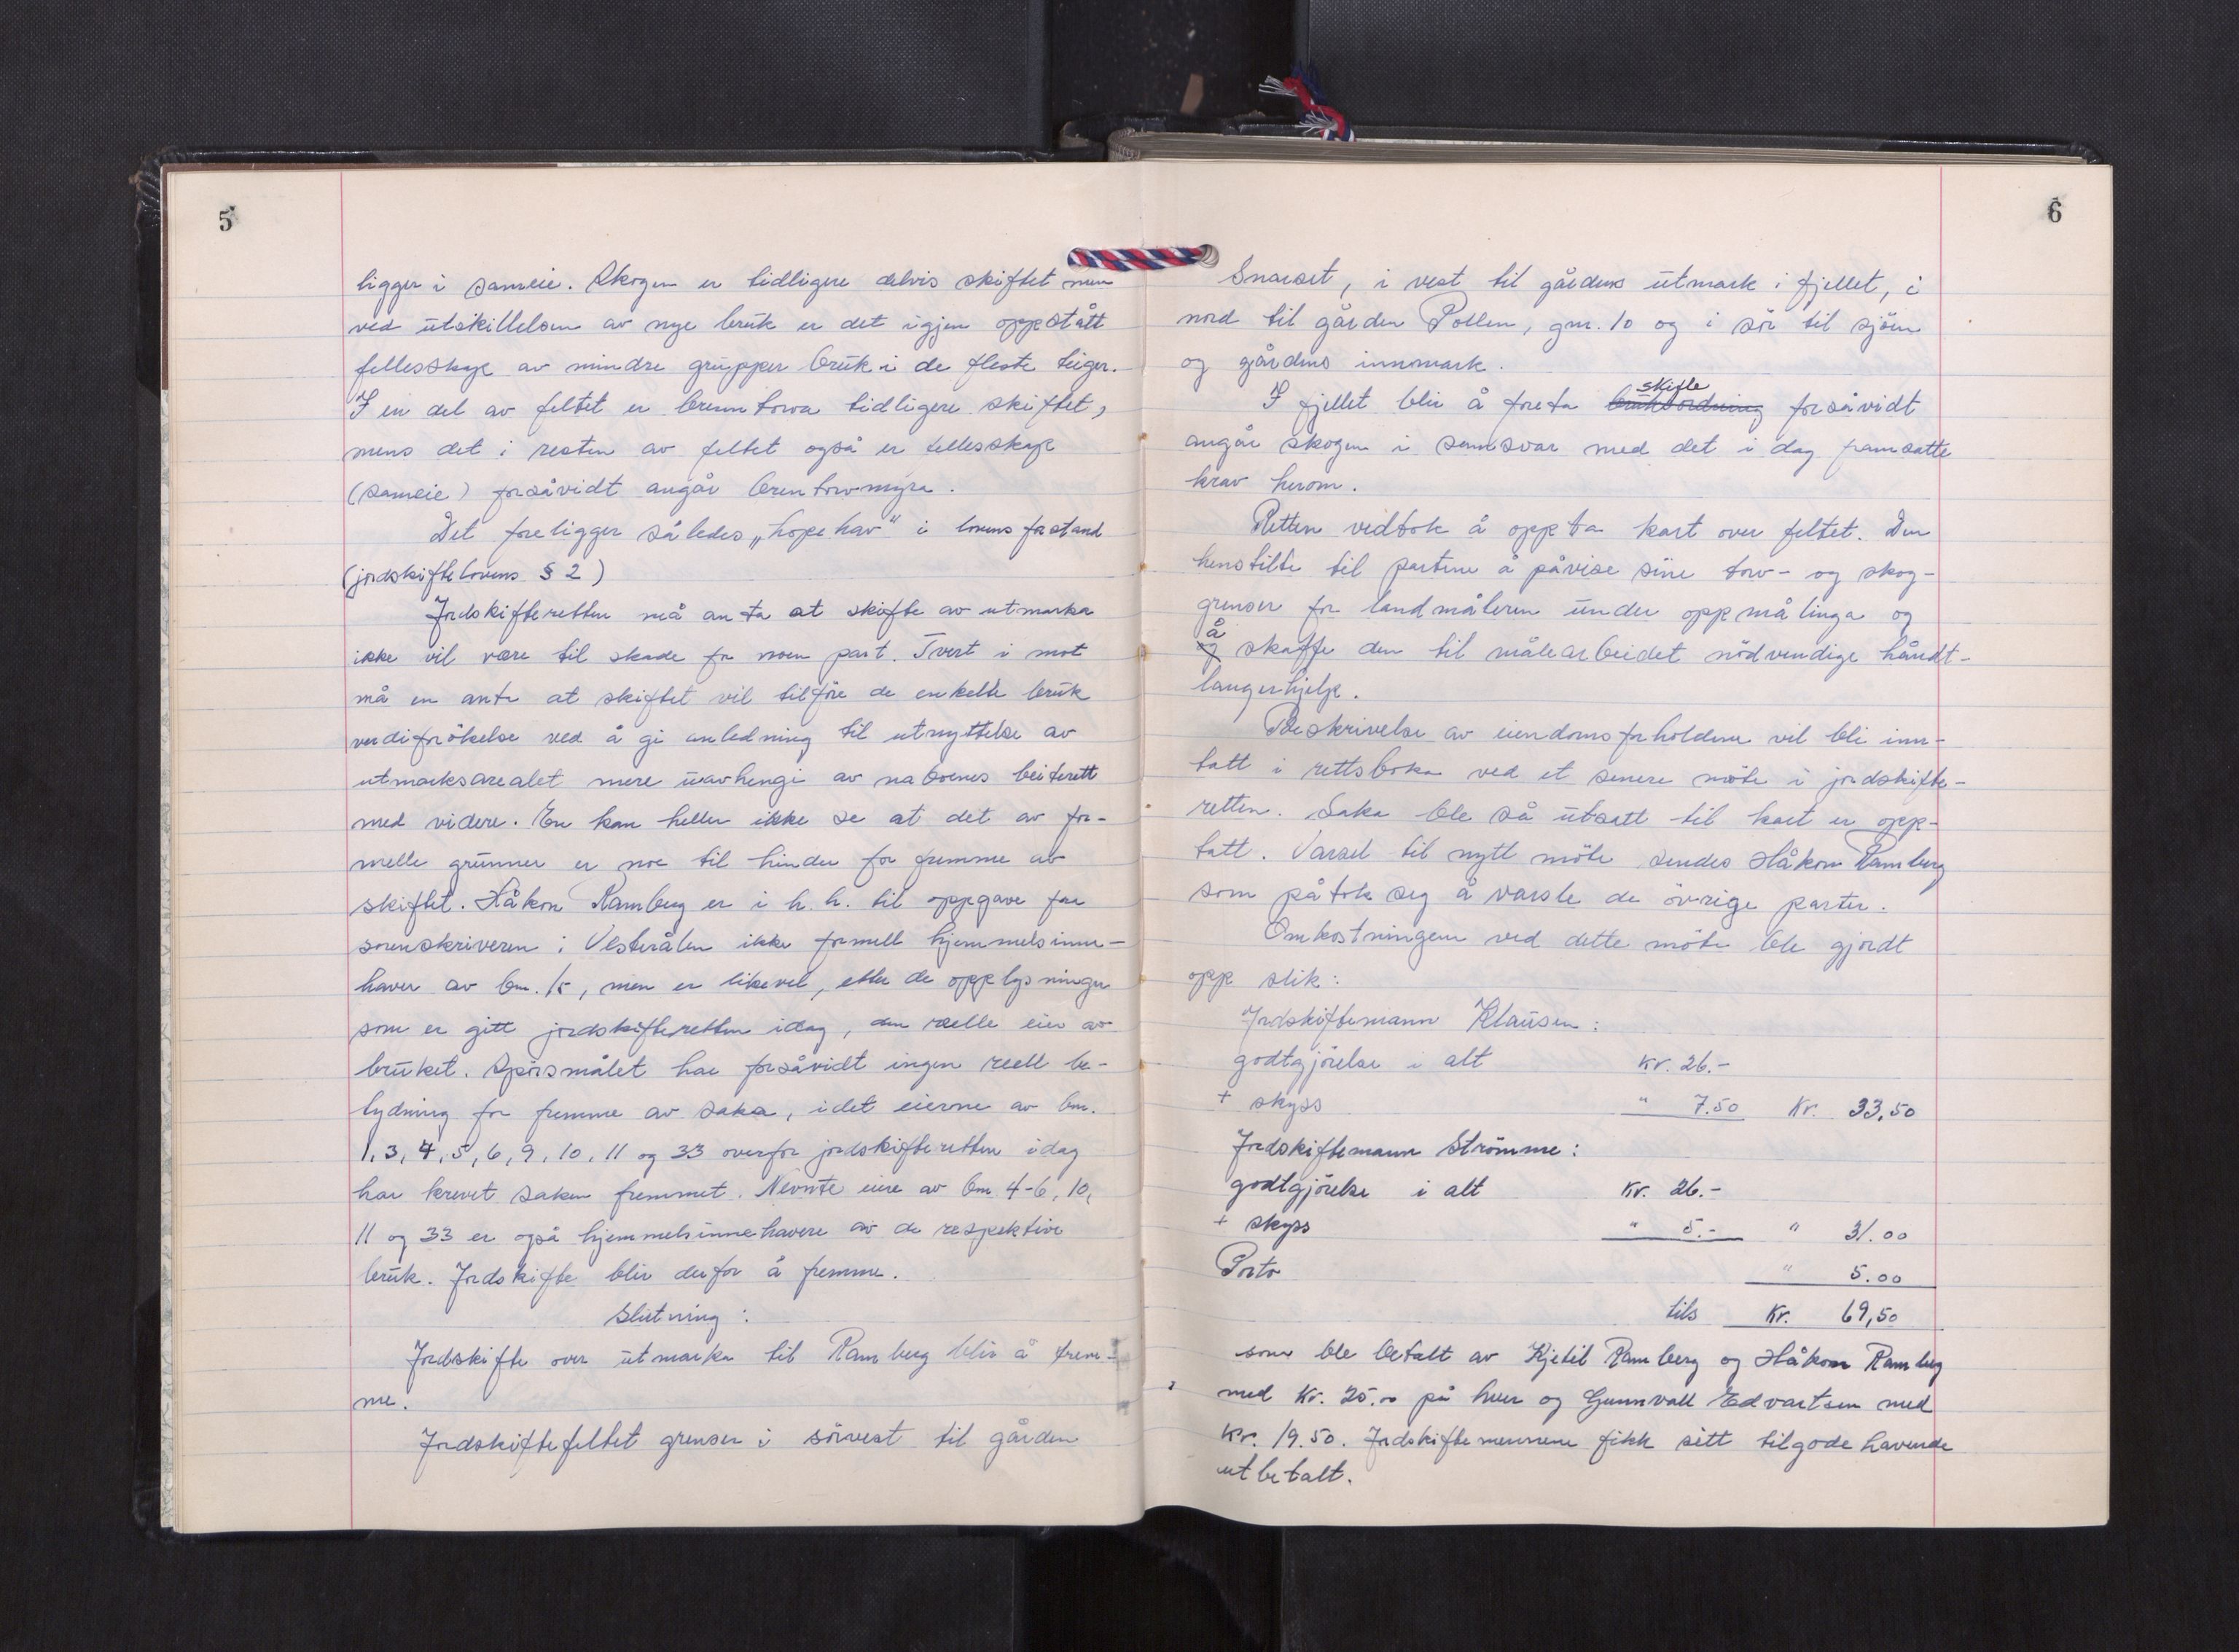 5
ligger i sameie. Skogen er tidligere delvis skiftet men
ved utskillelsen av nye bruk er det igjen oppstått
fellesskap av mindre grupper bruk i de fleste teiger.
I en del av feltet er brenntorva tidligere skiftet,
mens det i resten av feltet også er fellesskap
(sameie) forsåvidt angår brentorvmyra.
Det foreligger således „hopehav" i lovens forstand
(jordskiftelovens § 2)
Jordskifteretten må anta at skifte av utmarka
ikke vil være til skade for noen part. Tvert i mot
må en anta at skiftet vil tilföre de enkelte bruk
verdiforökelse ved å gi anledning til utnyttelse av
utmarksarealet mere uavhengi av naboenes beiterett
med videre. En kan heller ikke se at det av for-
melle grunner er noe til hinder for fremme av
skiftet. Håkon Ramberg er i h.h. til oppgave fra
sorenskriveren i Vesterålen ikke formell hjemmelsinne-
haver av bnr. 15, men er likevel, etter de opplysninger
som er gitt jordskifteretten idag, den reelle eier av
bruket. Spörsmålet har forsåvidt ingen reell be-
tydning for fremme av saka, idet eierne av bnr.
1, 3, 4, 5, 6, 9, 10, 11 og 33 overfor jordskifteretten idag
har krevet saken fremmet. Nevnte eiere av bnr 4-6, 10,
11 og 33 er også hjemmelsinnehavere av de respektive
bruk. Jordskifte blir derfor å fremme.
Slutning:
Jordskifte over utmarka til Ramberg blir å frem-
me.
Jordskiftefeltet grenser i sörvest til gården
6
Snarset, i vest til gårdens utmark i fjellet, i
nord til gården Pollen, gnr. 10 og i sör til sjöen
og gårdens innmark.
I fjellet blir å foreta bruksordning skifte forsåvidt
angår skogen i samsvar med det i dag framsatte
krav herom.
Retten vedtok å oppta kart over feltet. Den
henstilte til partene å påvise sine torv- og skog-
grenser for landmåleren under oppmålinga og
og å skaffe den til målearbeidet nödvendige håndt-
langerhjelp.
Beskrivelse av eiendomsforholdene vil bli inn-
tatt i rettsboka ved et senere möte i jordskifte-
retten. Saka ble så utsatt til kart er opp-
tatt. Varsel til nytt möte sendes Håkon Ramberg
som påtok seg å varsle de övrige parter.
Omkostningene ved dette möte ble gjordt
opp slik:
Jordskiftemann Klausen:
godtgjörelse i alt kr. 26.-
+ skyss " 7.50 Kr. 33,50
Jordskiftemann Strömme:
godtgjörelse i alt kr. 26.-
+ skyss " 5.- " 31.00
Porto " 5.00
tils Kr. 69,50
som ble betalt av Kjetil Ramberg og Håkon Ramberg
med kr. 25.00 på hver og Gunnvall Edvartsen med
kr. 19.50. Jordskiftemennene fikk sitt tilgodehavende
utbetalt.